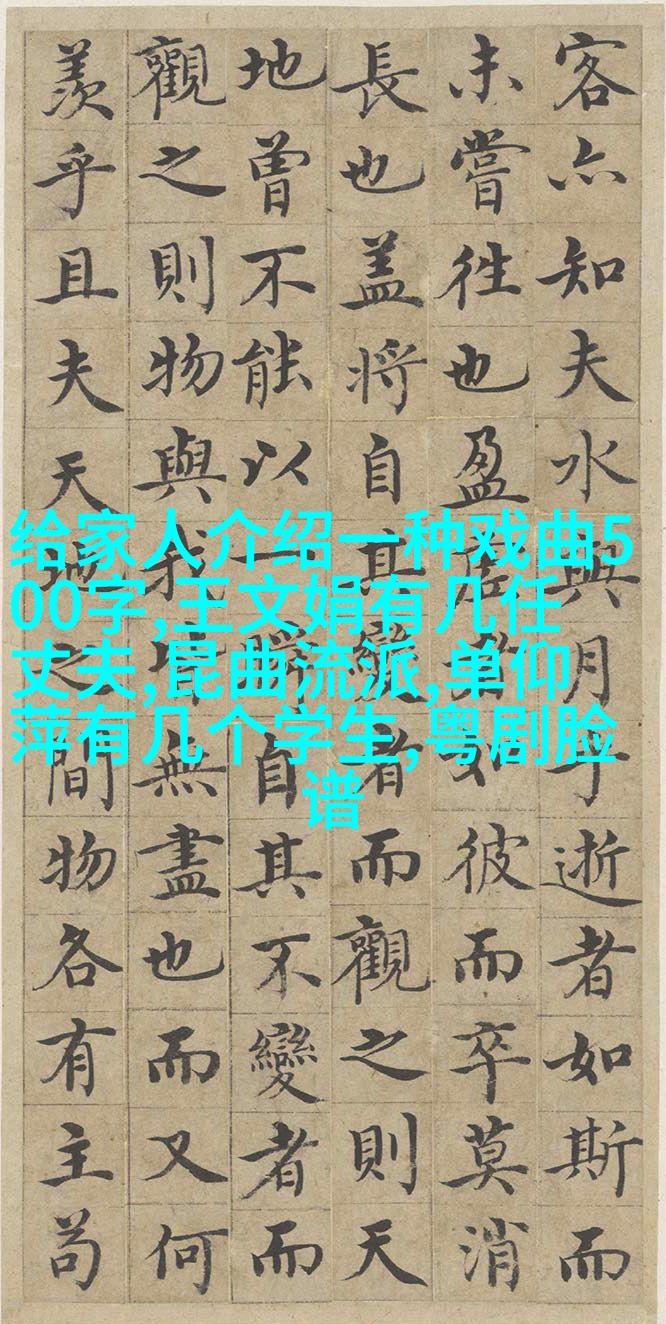 客亦知夫水與月乎逝者如斯而
未嘗往也盈虛者如彼而卒莫消
長也盖將自其變者而觀之則天
地曾不能以一瞬自其不變者而
觀之則物與我皆無盡也而又何
羨乎且夫天地之間物各有主苟
给家人介绍一种戏曲5
00字,王文娟有几任
丈夫,昆曲流派,单仰
萍有几个学生,粤剧脸
谱